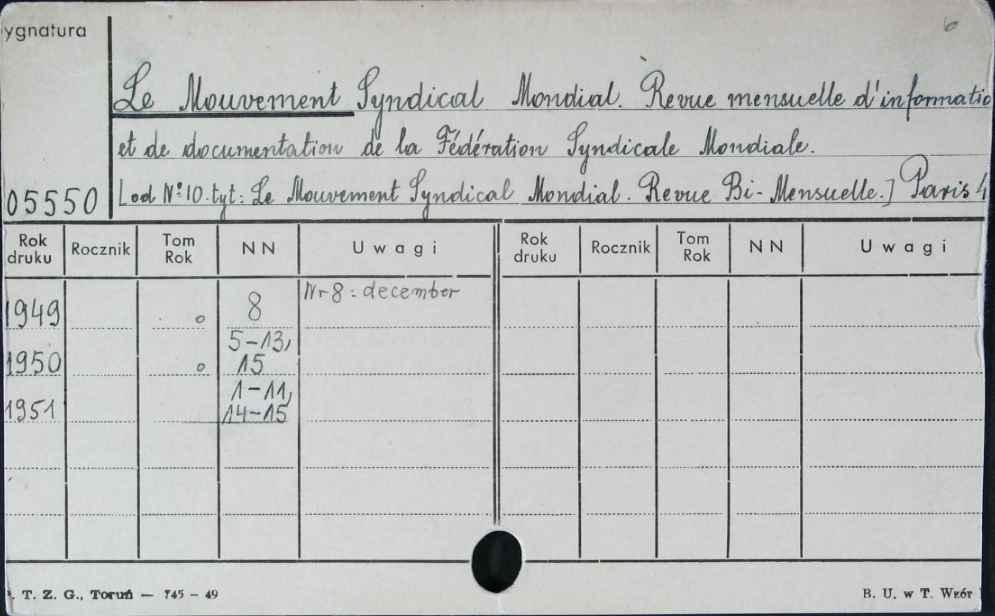 ygnatura
6
Le Mouvement Syndical Mondial. Revue mensuelle d'informatio
et de documentation de la Fédération Syndicale Mondiale.
05550 [od Nº 10. tyt: Le Mouvement Syndical Mondial. Revue Bi-Mensuelle.] Paris 4
Rok druku Rocznik Tom Rok NN Uwagi Rok druku Rocznik Tom Rok NN Uwagi
1949 o 8 Nr 8: december
5-13,
1950 o 15
1-11,
1951 14-15
. T. Z. G., Toruń — 745 - 49 B. U. w T. Wzór